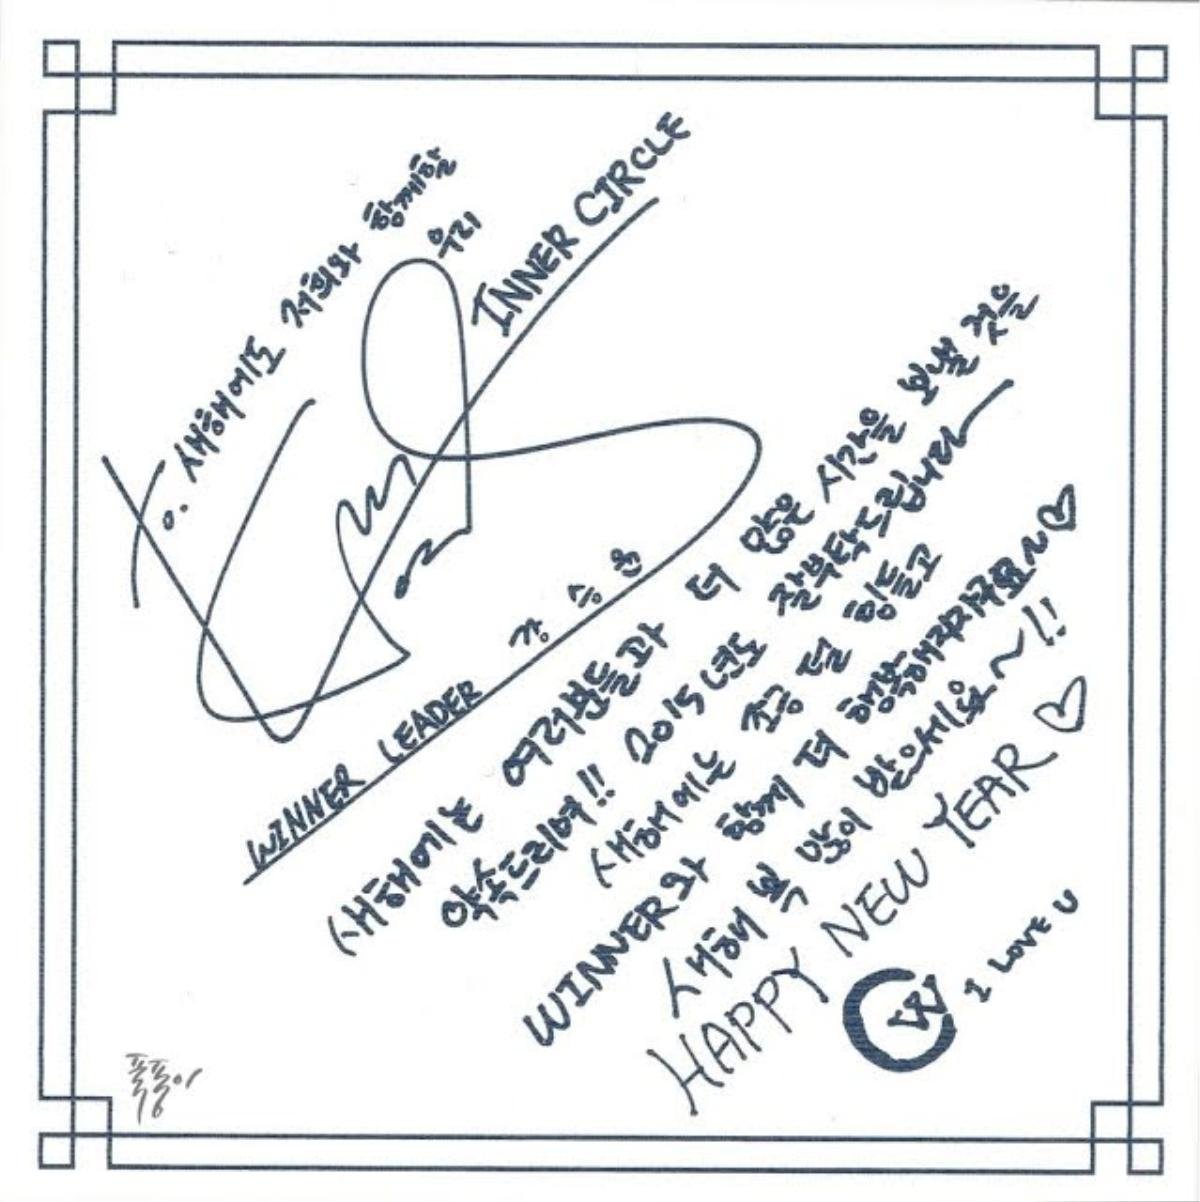 To. 새해에도 저희와 함께할
우리
INNER CIRCLE
WINNER LEADER 강승윤
새해에는 여러분들과 더 많은 시간을 보낼 것을
약속드리며!! 2015년도 잘부탁드립니다
새해에는 조금 덜 힘들고
WINNER와 함께 더 행복해지자구요~♡
새해 복 많이 받으세요~!!
HAPPY NEW YEAR ♡
W I LOVE U
폭풍이